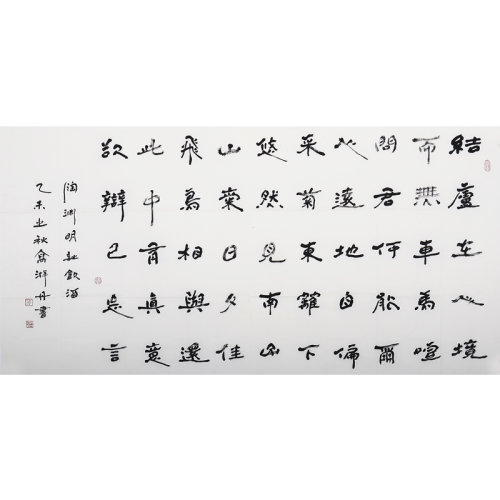 結廬在人境
而無車馬喧
問君何能爾
心遠地自偏
采菊東籬下
悠然見南山
山氣日夕佳
飛鳥相與還
此中有真意
欲辯已忘言
陶渊明詩飲酒
乙未之秋丹書